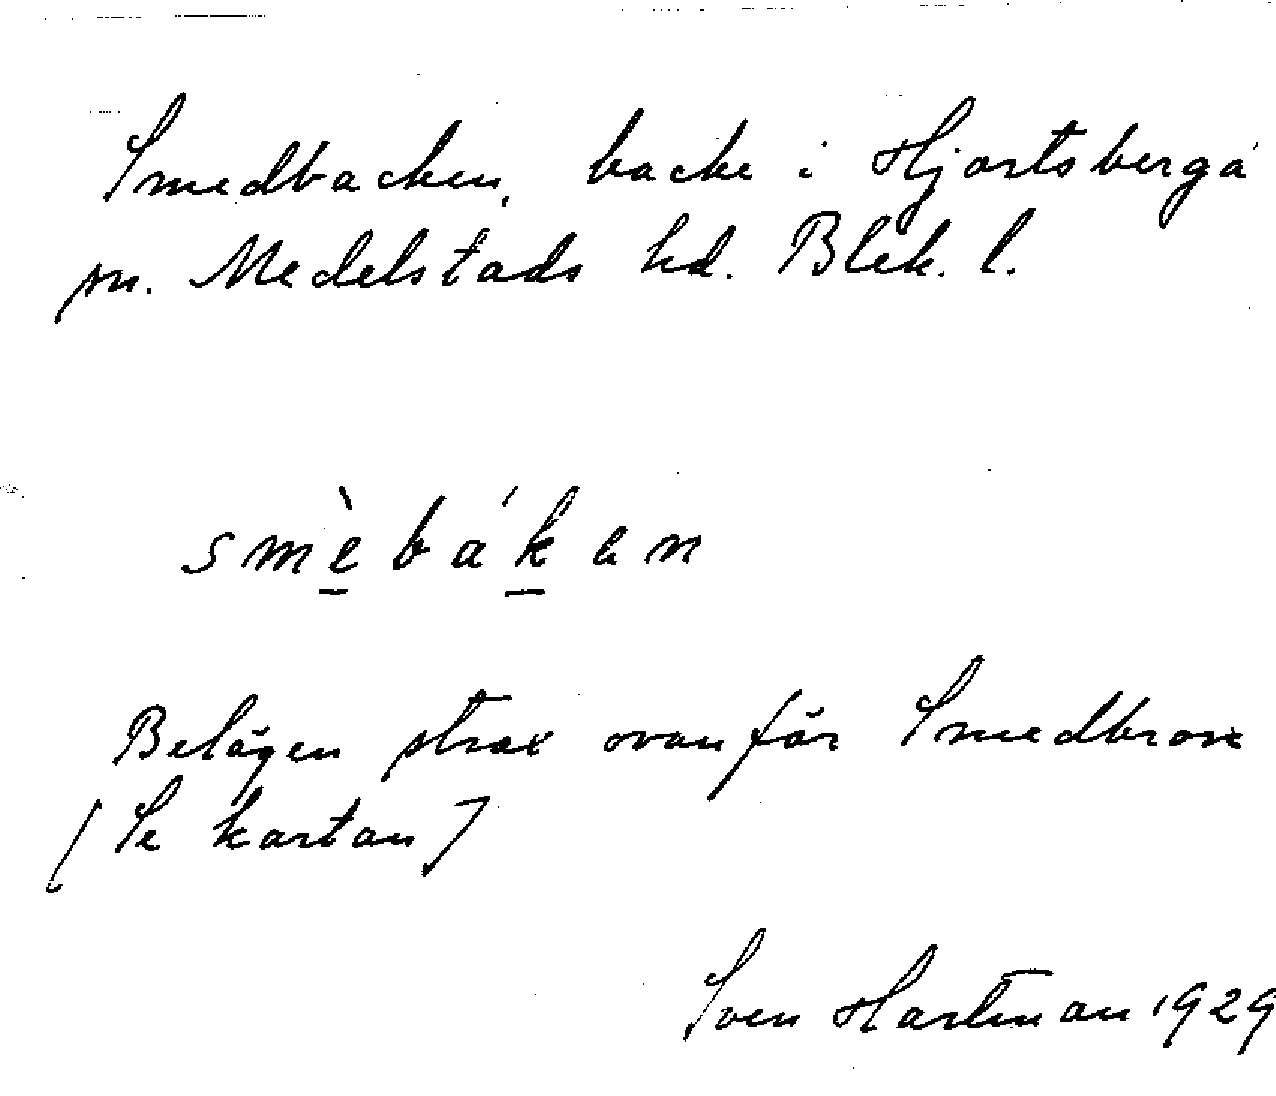 Smedbacken, backe i Hjortsberga
sn. Medelstads hd. Blek. l.
smèbákan
Belägen strax ovanför Smedbron
(Se kartan)
Sven Hartman 1929